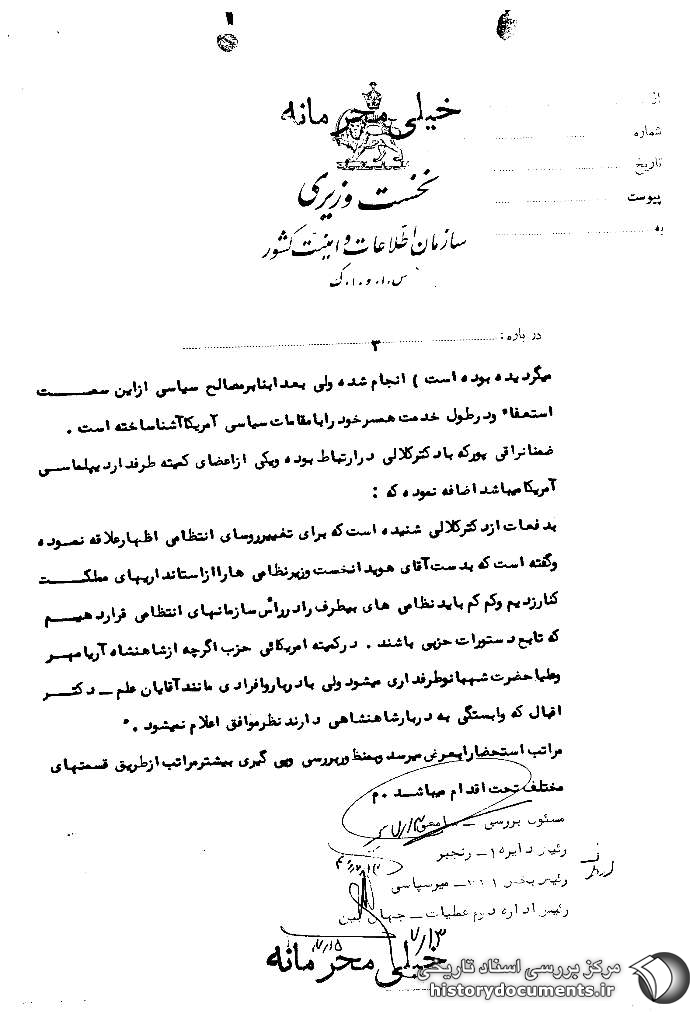 خیلی محرمانه
از
شماره
تاریخ
پیوست
به
نخست وزیری
سازمان اطلاعات و امنیت کشور
س.ا.و.ا.ک
درباره:
۳
میگردیده بوده است ) انجام شده ولی بعد ابنابر مصالح سیاسی ازاین سمت
استعفاء و در طول خدمت همسر خود را با مقامات سیاسی آمریکا آشنا ساخته است .
ضمنا نراقی پور که با دکتر کلالی در ارتباط بوده و یکی از اعضای کمیته طرفدار دیپلماسی
آمریکا میباشد اضافه نموده که :
بدفعات از دکتر کلالی شنیده است که برای تغییر روسای انتظامی اظهار علاقه نموده
و گفته است که بدست آقای هویدا نخست وزیر نظامی ها را از استانداریهای مملکت
کنار زدیم و کم کم باید نظامی های بیطرف را در رأس سازمانهای انتظامی قرار دهیم
که تابع دستورات حزبی باشند . در کمیته امریکائی حزب اگرچه از شاهنشاه آریامهر
و علیاحضرت شهبانو طرفداری میشود ولی با دربار و افرادی مانند آقایان علم - دکتر
اقبال که وابستگی به دربار شاهنشاهی دارند نظر موافق اعلام نمیشود . "
مراتب استحضارا بعرض میرسد و بمنظور بررسی و پی گیری بیشتر مراتب از طریق قسمتهای
مختلف تحت اقدام میباشد . م
مسئول بررسی -
رئیس دایره ۱ - رنجبر
رئیس بخش ۳۲۱ - میرسپاسی
رئیس اداره دوم عملیات - جهان بین
۷/۱۳
۷/۱۵
خیلی محرمانه
مرکز بررسی اسناد تاریخی
historydocuments.ir